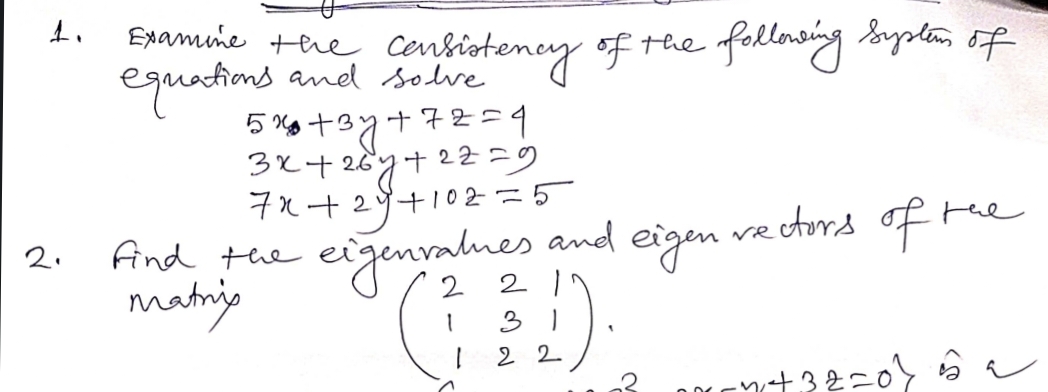 1. Examine the consistency of the following system of
equations and solve
5x + 3y + 7z = 4
3x + 26y + 2z = 9
7x + 2y + 10z = 5
2. Find the eigenvalues and eigen vectors of the
matrix
2 2 1
1 3 1
1 2 2
-y + 3z = 0} is a